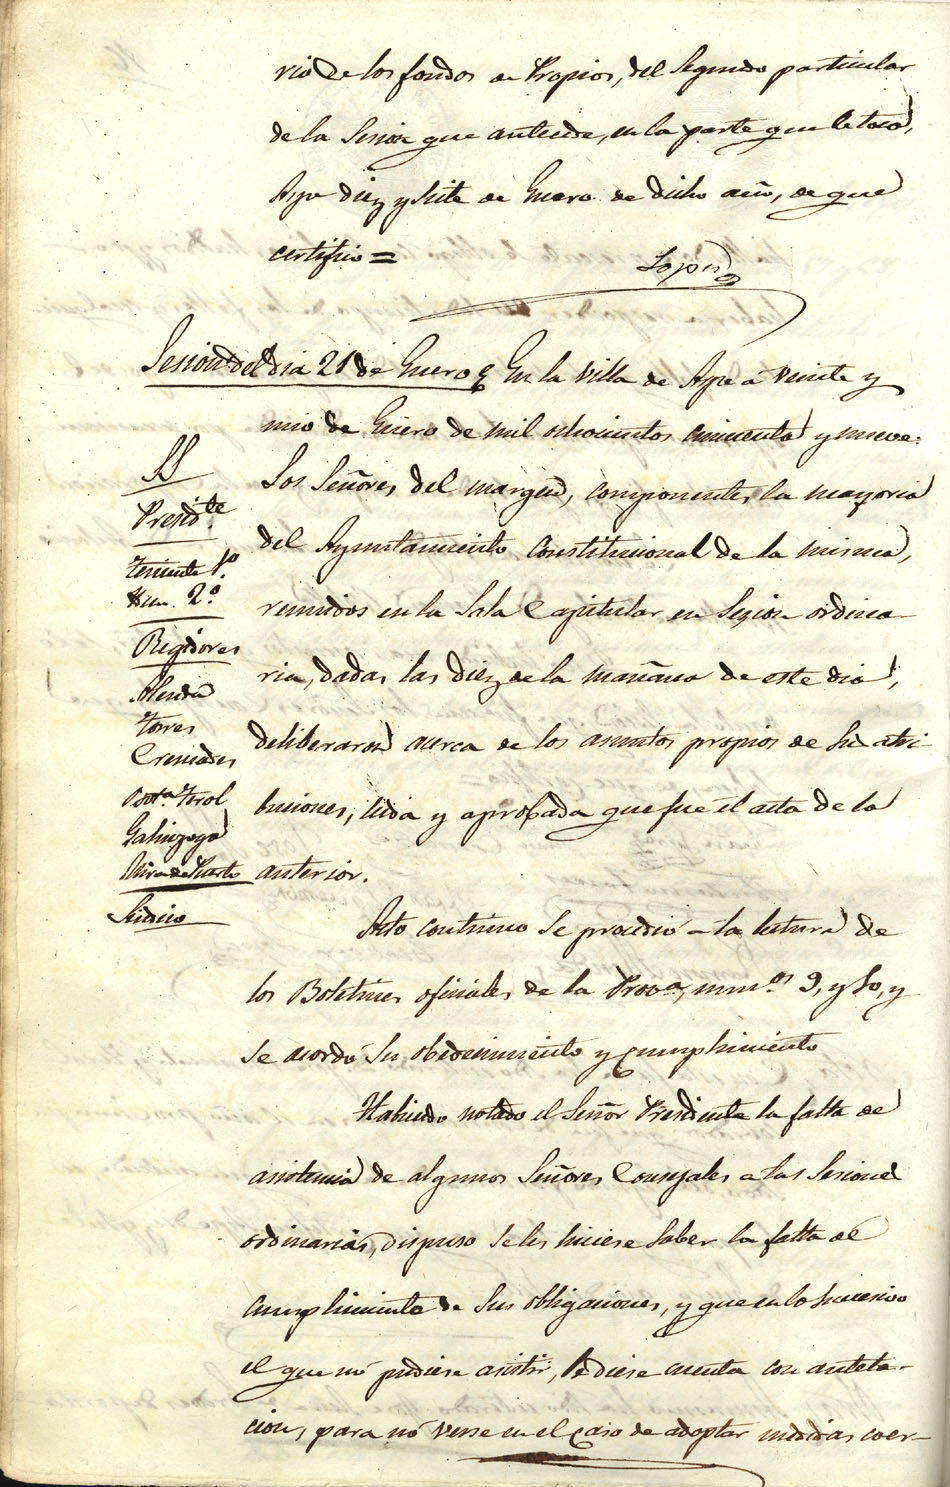 rio de los fondos de Propios, del segundo particular
de la Sesion que antecede, en la parte que le toca,
Aspe diez y siete de Enero de dicho año, de que
certifico =
Lopez
Sesion del dia 21 de Enero
En la Villa de Aspe a veinte y
uno de Enero de mil ochocientos cincuenta y nueve:
Los Señores del margen, componentes la mayoria
del Ayuntamiento Constitucional de la misma,
reunidos en la Sala Capitular en Sesion ordina-
ria, dadas las diez de la mañana de este dia,
deliberaron acerca de los asuntos propios de su atri-
buciones, leida y aprobada que fue el acta de la
anterior.
SS
Presid.te
Teniente 1º
Idem. 2º
Regidores
Almodia
Torres
Cremades
Bot.a Terol
Galinzoga
Mira de Puerto
Sindico
Acto continuo se procedió a la lectura de
los Boletines oficiales de la Prova, num.os 9, y 10, y
se acordó su obedecimiento y cumplimiento
Habiendo notado el Señor Presidente la falta de
asistencia de algunos Señores Concejales a las Sesiones
ordinarias, dispuso se les hiciese saber la falta de
cumplimiento de sus obligaciones, y que en lo sucesivo
el que nó pudiese asistir, le diese cuenta con antela-
cion, para nó verse en el caso de adoptar medidas coer-